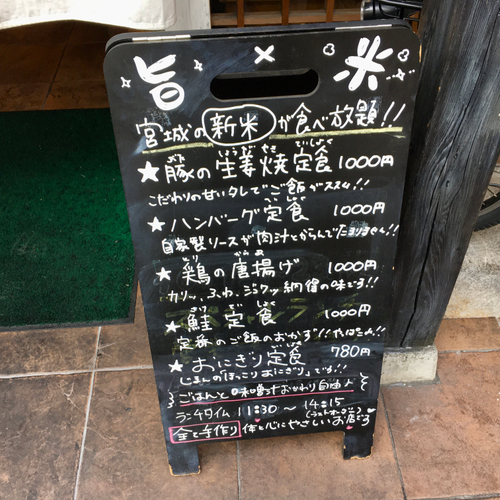 旨×米
宮城の新米が食べ放題!!
★豚の生姜焼定食 1000円
こだわりの甘いタレでご飯がススム!!
★ハンバーグ定食 1000円
自家製ソースが肉汁とからんでたまりません!!
★鶏の唐揚げ 1000円
カリッ、ふわ、ジュワッ納得の味でる!!
★鮭定食 1000円
定番のご飯のおかず!!
★おにぎり定食 780円
じまんのほっこりおにぎり♪でる!!
ごはんと味噌汁おかわり自由♪
ランチタイム 11:30〜14:15
(ラストオーダー)
全て手作り 体も心にやさしいお店でる